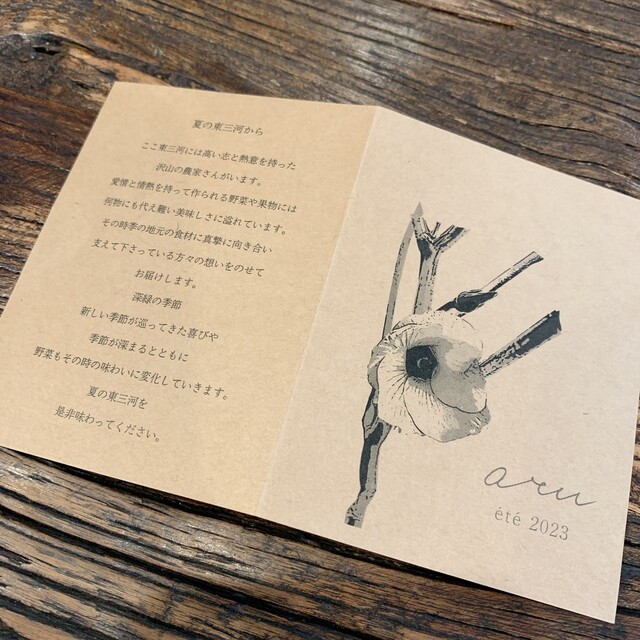 夏の東三河から
ここ東三河には高い志と熱意を持った
沢山の農家さんがいます。
愛情と情熱を持って作られる野菜や果物には
何物にも代え難い美味しさに溢れています。
その時季の地元の食材に真摯に向き合い
支えて下さっている方々の想いをのせて
お届けします。
深緑の季節
新しい季節が巡ってきた喜びや
季節が深まるとともに
野菜もその時の味わいに変化していきます。
夏の東三河を
是非味わってください。
aru
été 2023